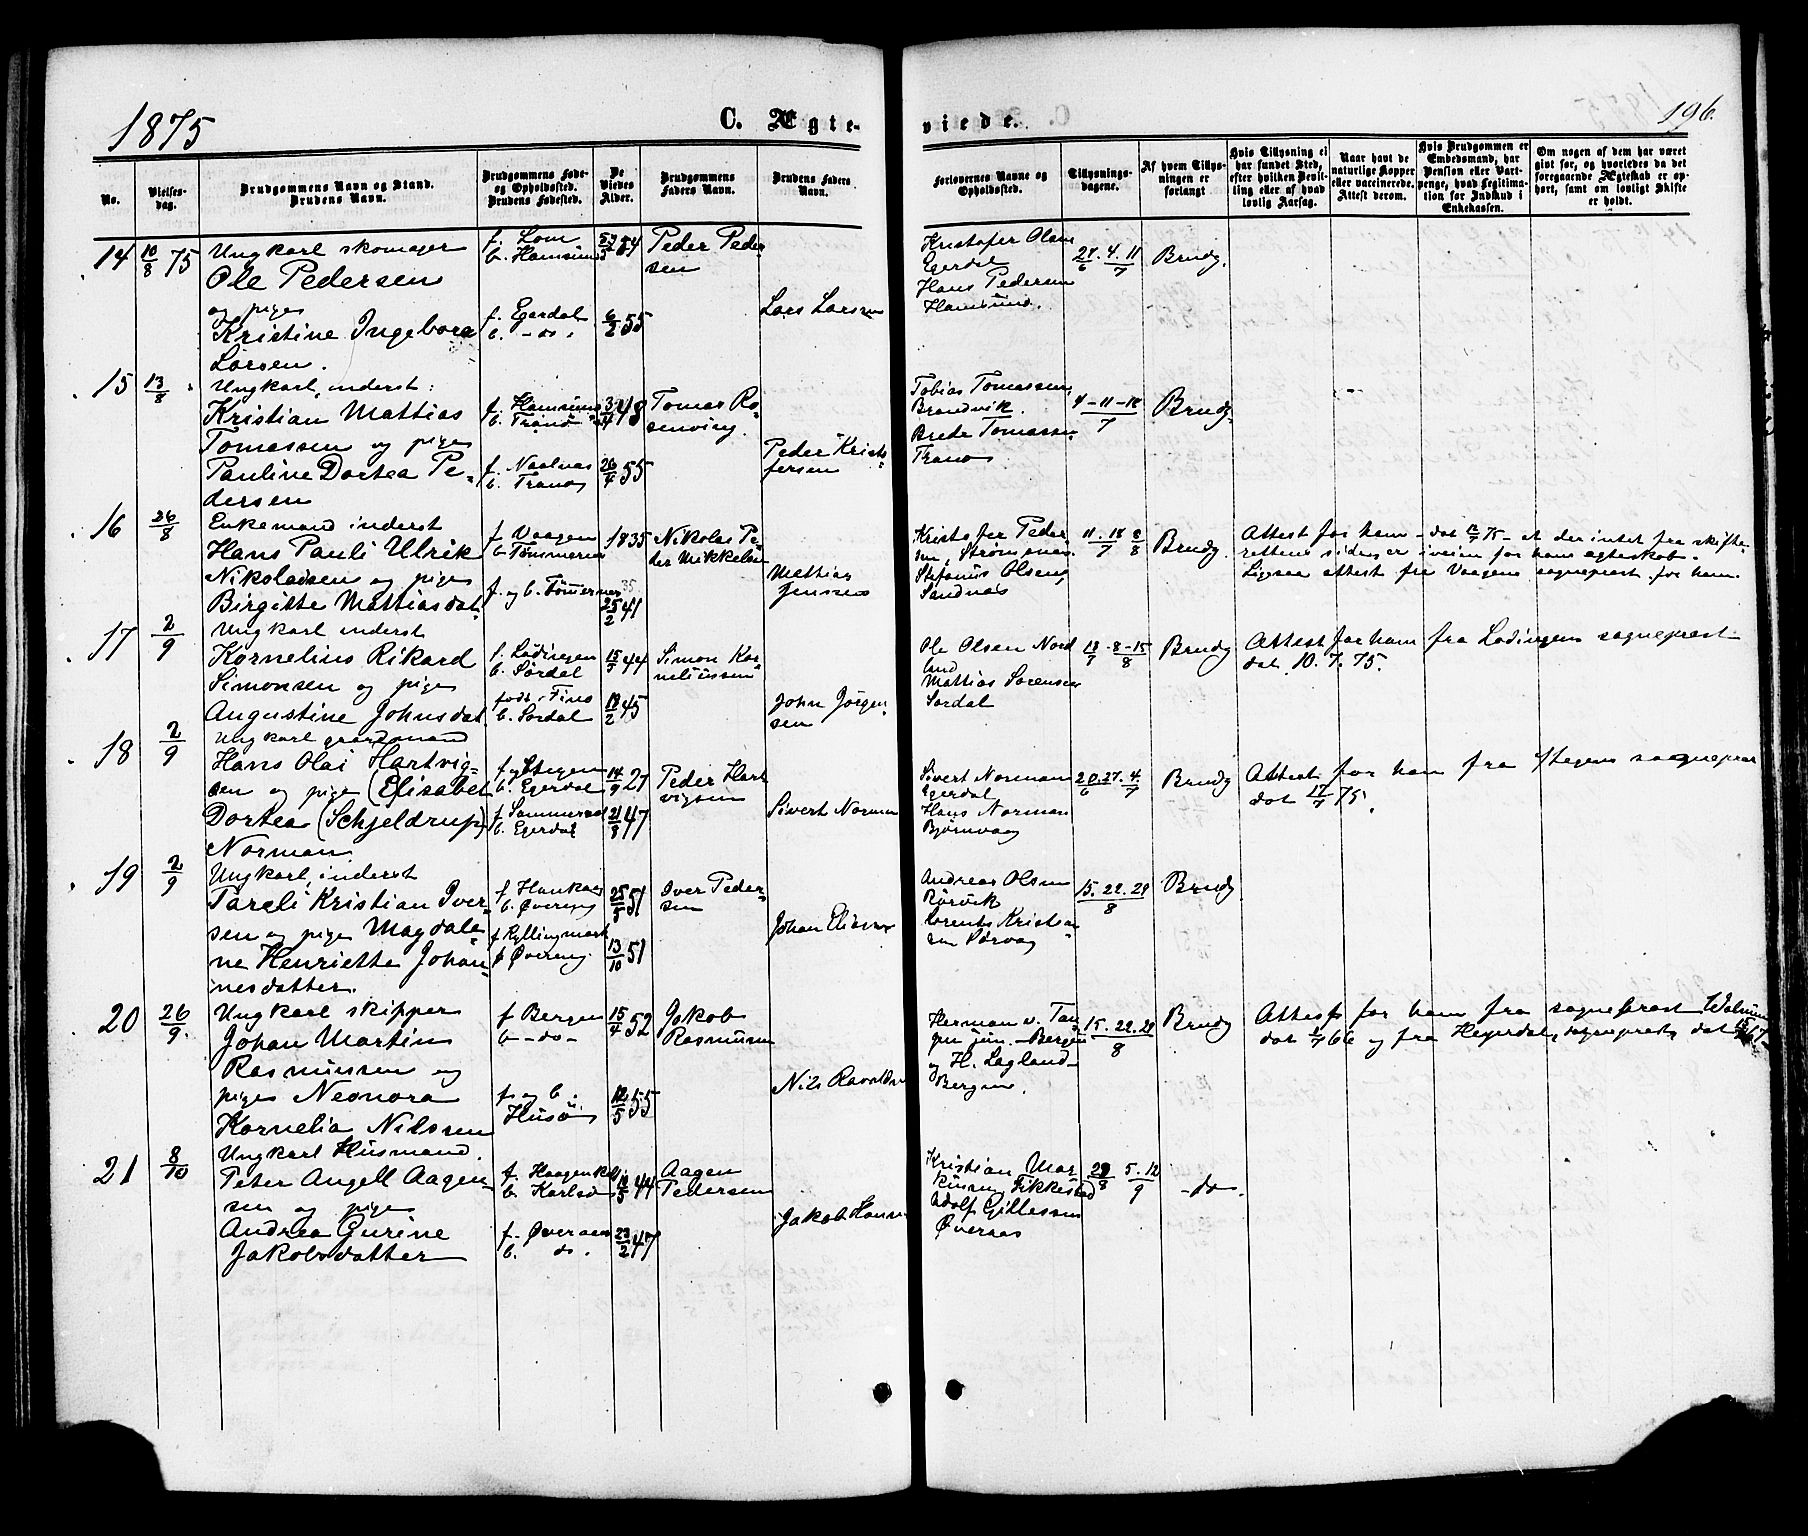 1875
C. Ægte-
viede.
196.
No.
Vielses-
dag.
Brudgommens Navn og Stand.
Brudens Navn.
Brudgommens Føde-
og Opholdssted.
Brudens Fødested.
De
Viedes
Alder.
Brudgommens
Faders Navn.
Brudens Faders
Navn.
Forlovernes Navne og
Opholdssted.
Tillysnings-
dagene.
Af hvem Tillys-
ningen er
forlangt.
Hvis Tillysning ei
har fundet Sted,
efter hvilken Bevil-
ling eller af hvad
lovlig Aarsag.
Naar havt de
naturlige Kopper
eller vaccinerede.
Attest derom.
Hvis Brudgommen er
Embedsmand, har
Pension eller Vart-
penge, hvad Legitima-
tion for Indskud i
Enkekassen.
Om nogen af dem har været
givt før, og hvorledes da det
foregaaende Ægteskab er op-
hørt, samt om lovligt Skifte
er holdt.
14 10/8 75
Ungkarl skomager
Ole Pedersen
og pige
Kristine Ingeborg
Larsen.
f. Lom
b. Hamsund
f. Egerdal
b. - do.
6/2 55
Peder Peder
sen
Lars Larsen
Kristofer Olsen
Egerdal
Hans Pedersen
Hamsund.
27/6. 4. 11/7
Brudg.
15 13/8
Ungkarl, inderst:
Kristian Mattias
Tomassen og pige
Pauline Dortea Pe-
dersen
f. Hamsund
b. Tranø
f. Naalnæs
b. Tranø
26/4 55
Tomas Ro-
senving.
Peder Krist-
fersen
Tobias Tomassen,
Brandvik.
Brede Tomassen
Tranø
4-11-18/7
Brudg.
16 26/8
Enkemand inderst
Hans Pauli Ulrik
Nikolaisen og pige
Birgitte Mattiasdat.
f. Vaagen
b. Tømmernes
f. og b. Tømmernes
1835
25/2 41
Nikolas Pe-
der Mikkelsen
Mattias
Jenssen
Kristofer Peder
sen, Strømsnes
Stefanus Olsen,
Sandnæs
11. 18/7 8/8
Brudg.
Attest for ham - dat 12/7 75 - at der intet fra skifte-
rettens side er iveien for hans ægteskab.
Ligesaa attest fra Vaagens sogneprest for ham.
17 2/9
Ungkarl inderst
Kornelius Rikard
Simonsen og pige
Augustine Johnsdat.
f. Lødingen
b. Sørdal
født i Fins
b. Sørdal
15/5 44
18/2 45
Simon Kor-
neliussen
John Jörgen
sen
Ole Olsen Nord
lund
Mattias Sørensen
Sørdal
18/7. 8-15/8
Brudg
Attest for ham fra Lødingens sogneprest
dat. 10. 7. 75.
18 2/9
Ungkarl gaardmand
Hans Olai Hartvig-
sen og pige (Elisabet
Dortea (Schjeldrup)
Norman
f. Stegen
b. Egerdal
f. Sommersel
b. Egerdal
14/9 27
21/8 47
Peder Hart
vigsen
Sivert Norman
Sivert Norman
Egerdal
Hans Norman
Bjørnvaag
20.27/6. 4/7
Brudg
Attest for ham fra Stegens sogneprest
dat 17/7 75.
19 2/9
Ungkarl, inderst
Pareli Kristian Iver-
sen og pige Magdale-
ne Henriette Johan-
nesdatter.
b. Øvereng
f Kyllingmark
b Øvereng.
25/5 51
13/10 51
Iver Peder-
sen
Johan Eliassen
Andreas Olsen
Rørvik
Lorents Kristian
sen Pørvaag
15. 22. 29/8
Brudg
20 26/9.
Ungkarl skipper
Johan Martin
Rasmussen og
pige Neonora
Kornelia Nilssen
f Bergen
b - do -
f. og b.
Husø
15/4 52
12/5 55
Jakob
Rasmussen
Herman v. Tan
gen jun. - Bergen
og H. Lagland -
Bergen.
15. 22. 29/8
Brudg
21 8/10
Ungkarl Husmand.
Peter Angell Aagen-
sen og pige
Andrea Gurine
Jakobsdatter
b. Karlsø
f. Øveraas
b. do.
23/2 47
Aagen
Pedersen
Jakob Hansen
Kristian Mar
kussen, Fikkestad
Adolf Gillessen
Øveraas
29/8 5. 12/9
- do -